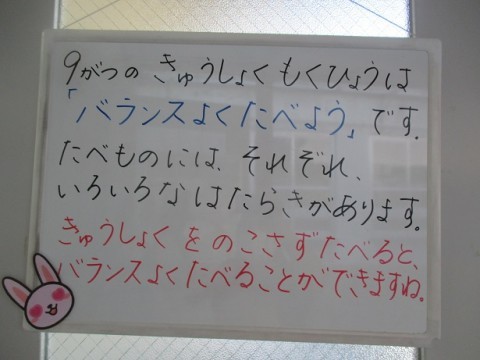 9がつの きゅうしょく もくひょうは
「バランスよくたべよう」です.
たべものには、それぞれ、
いろいろなはたらきがあります。
きゅうしょくをのこさずたべると、
バランスよくたべることができますね。